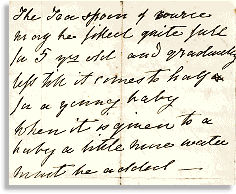 The Tea spoon of course
may be filled quite full
for 5 yrs old and gradually
less till it comes to half a
for a young baby
when it is given to a
baby a little more water
must be added —